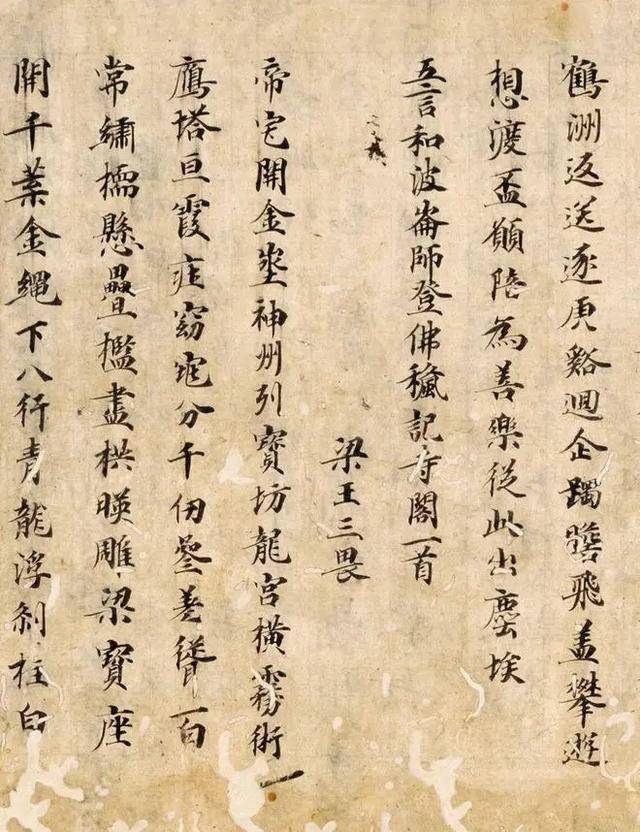 鶴洲返送逐庾谿迴企躅驂飛盖攀遊
想渡盃願陪為善樂從此出塵埃
五言和波崙師登佛穢記寺閣一首
梁王三畏
帝宅開金埊神州列寳坊龍宮橫霧術
鴈塔亘霞庄窈窕分千仞叄差聳一百
常繡㯹懸疊檻畫栱暎雕梁寳座
開千葉金繩下八行青龍浮刹柱白